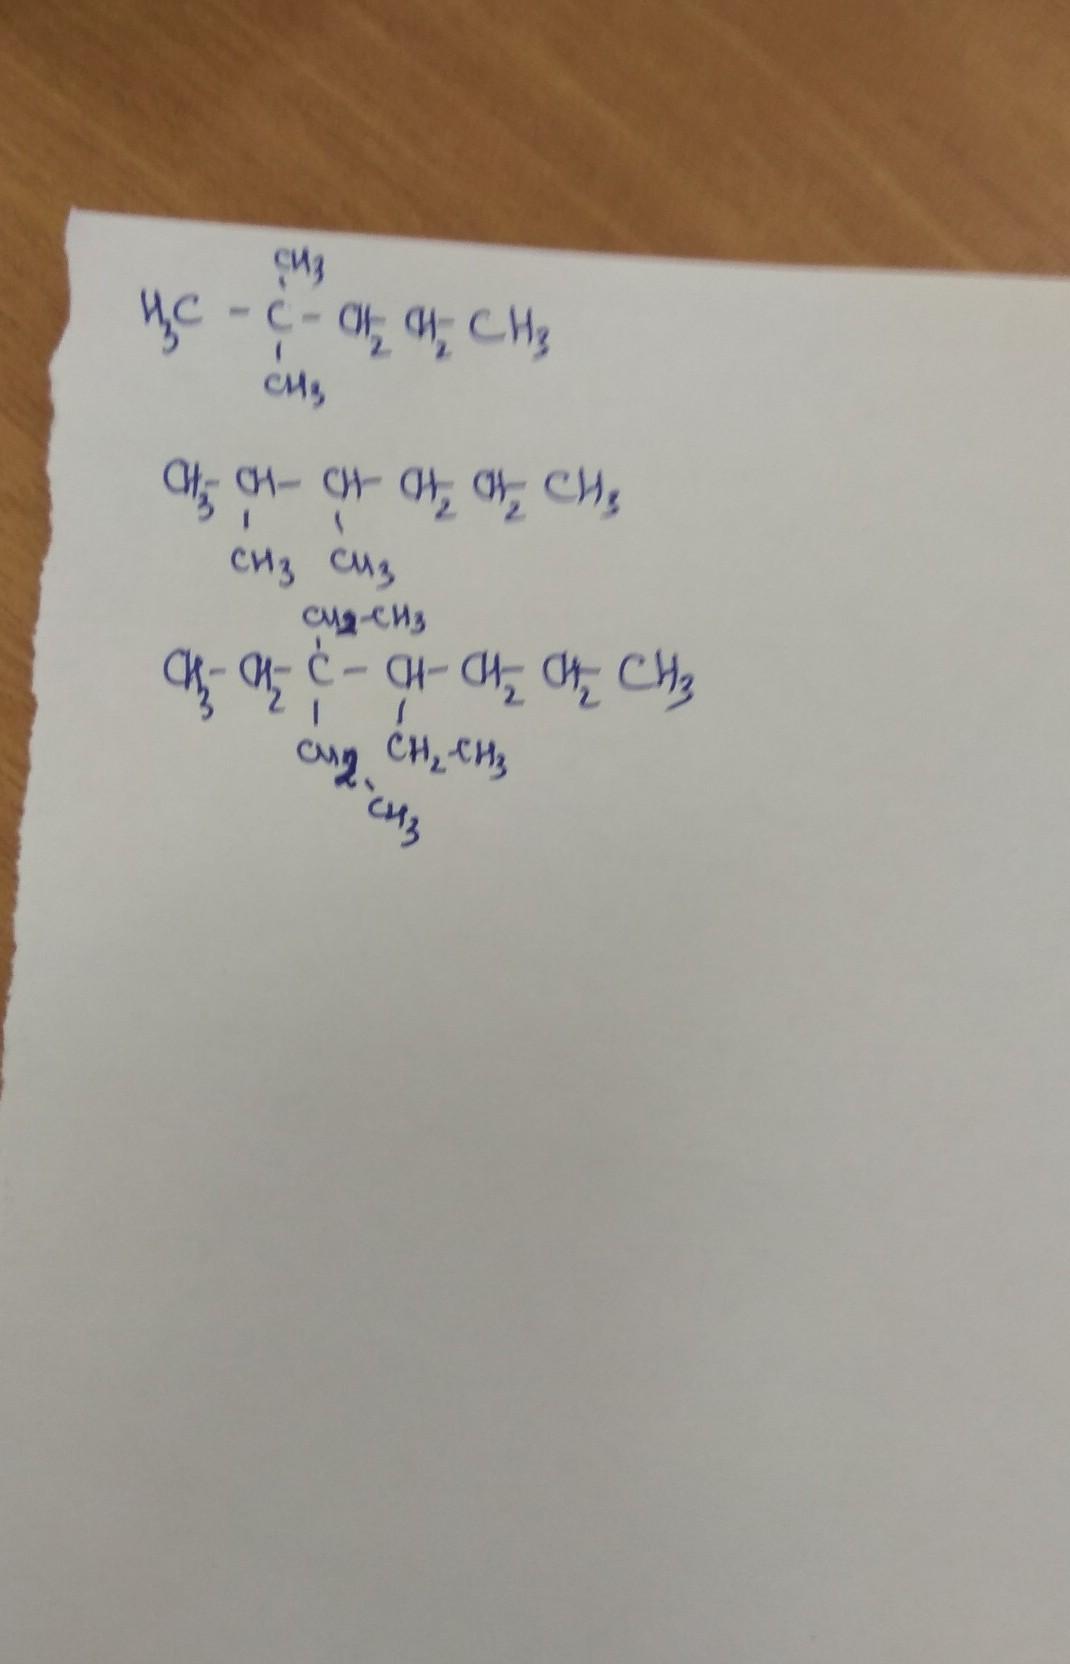 CH3
H3C - C - CH2- CH2- CH3
CH3
CH3- CH- CH- CH2- CH2- CH3
CH3 CH3
CH2-CH3
CH3- CH2- C - CH- CH2- CH2- CH3
CH2- CH2-CH3
CH3